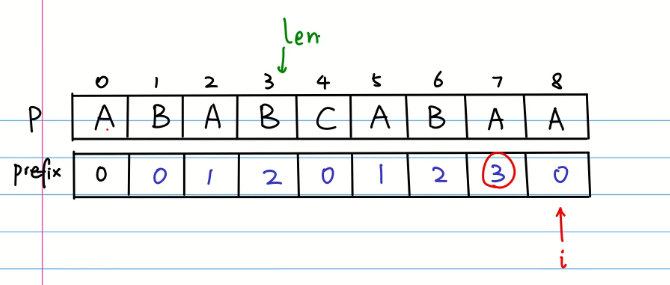 len
0 1 2 3 4 5 6 7 8
P A B A B C A B A A
prefix 0 0 1 2 0 1 2 3 0
i